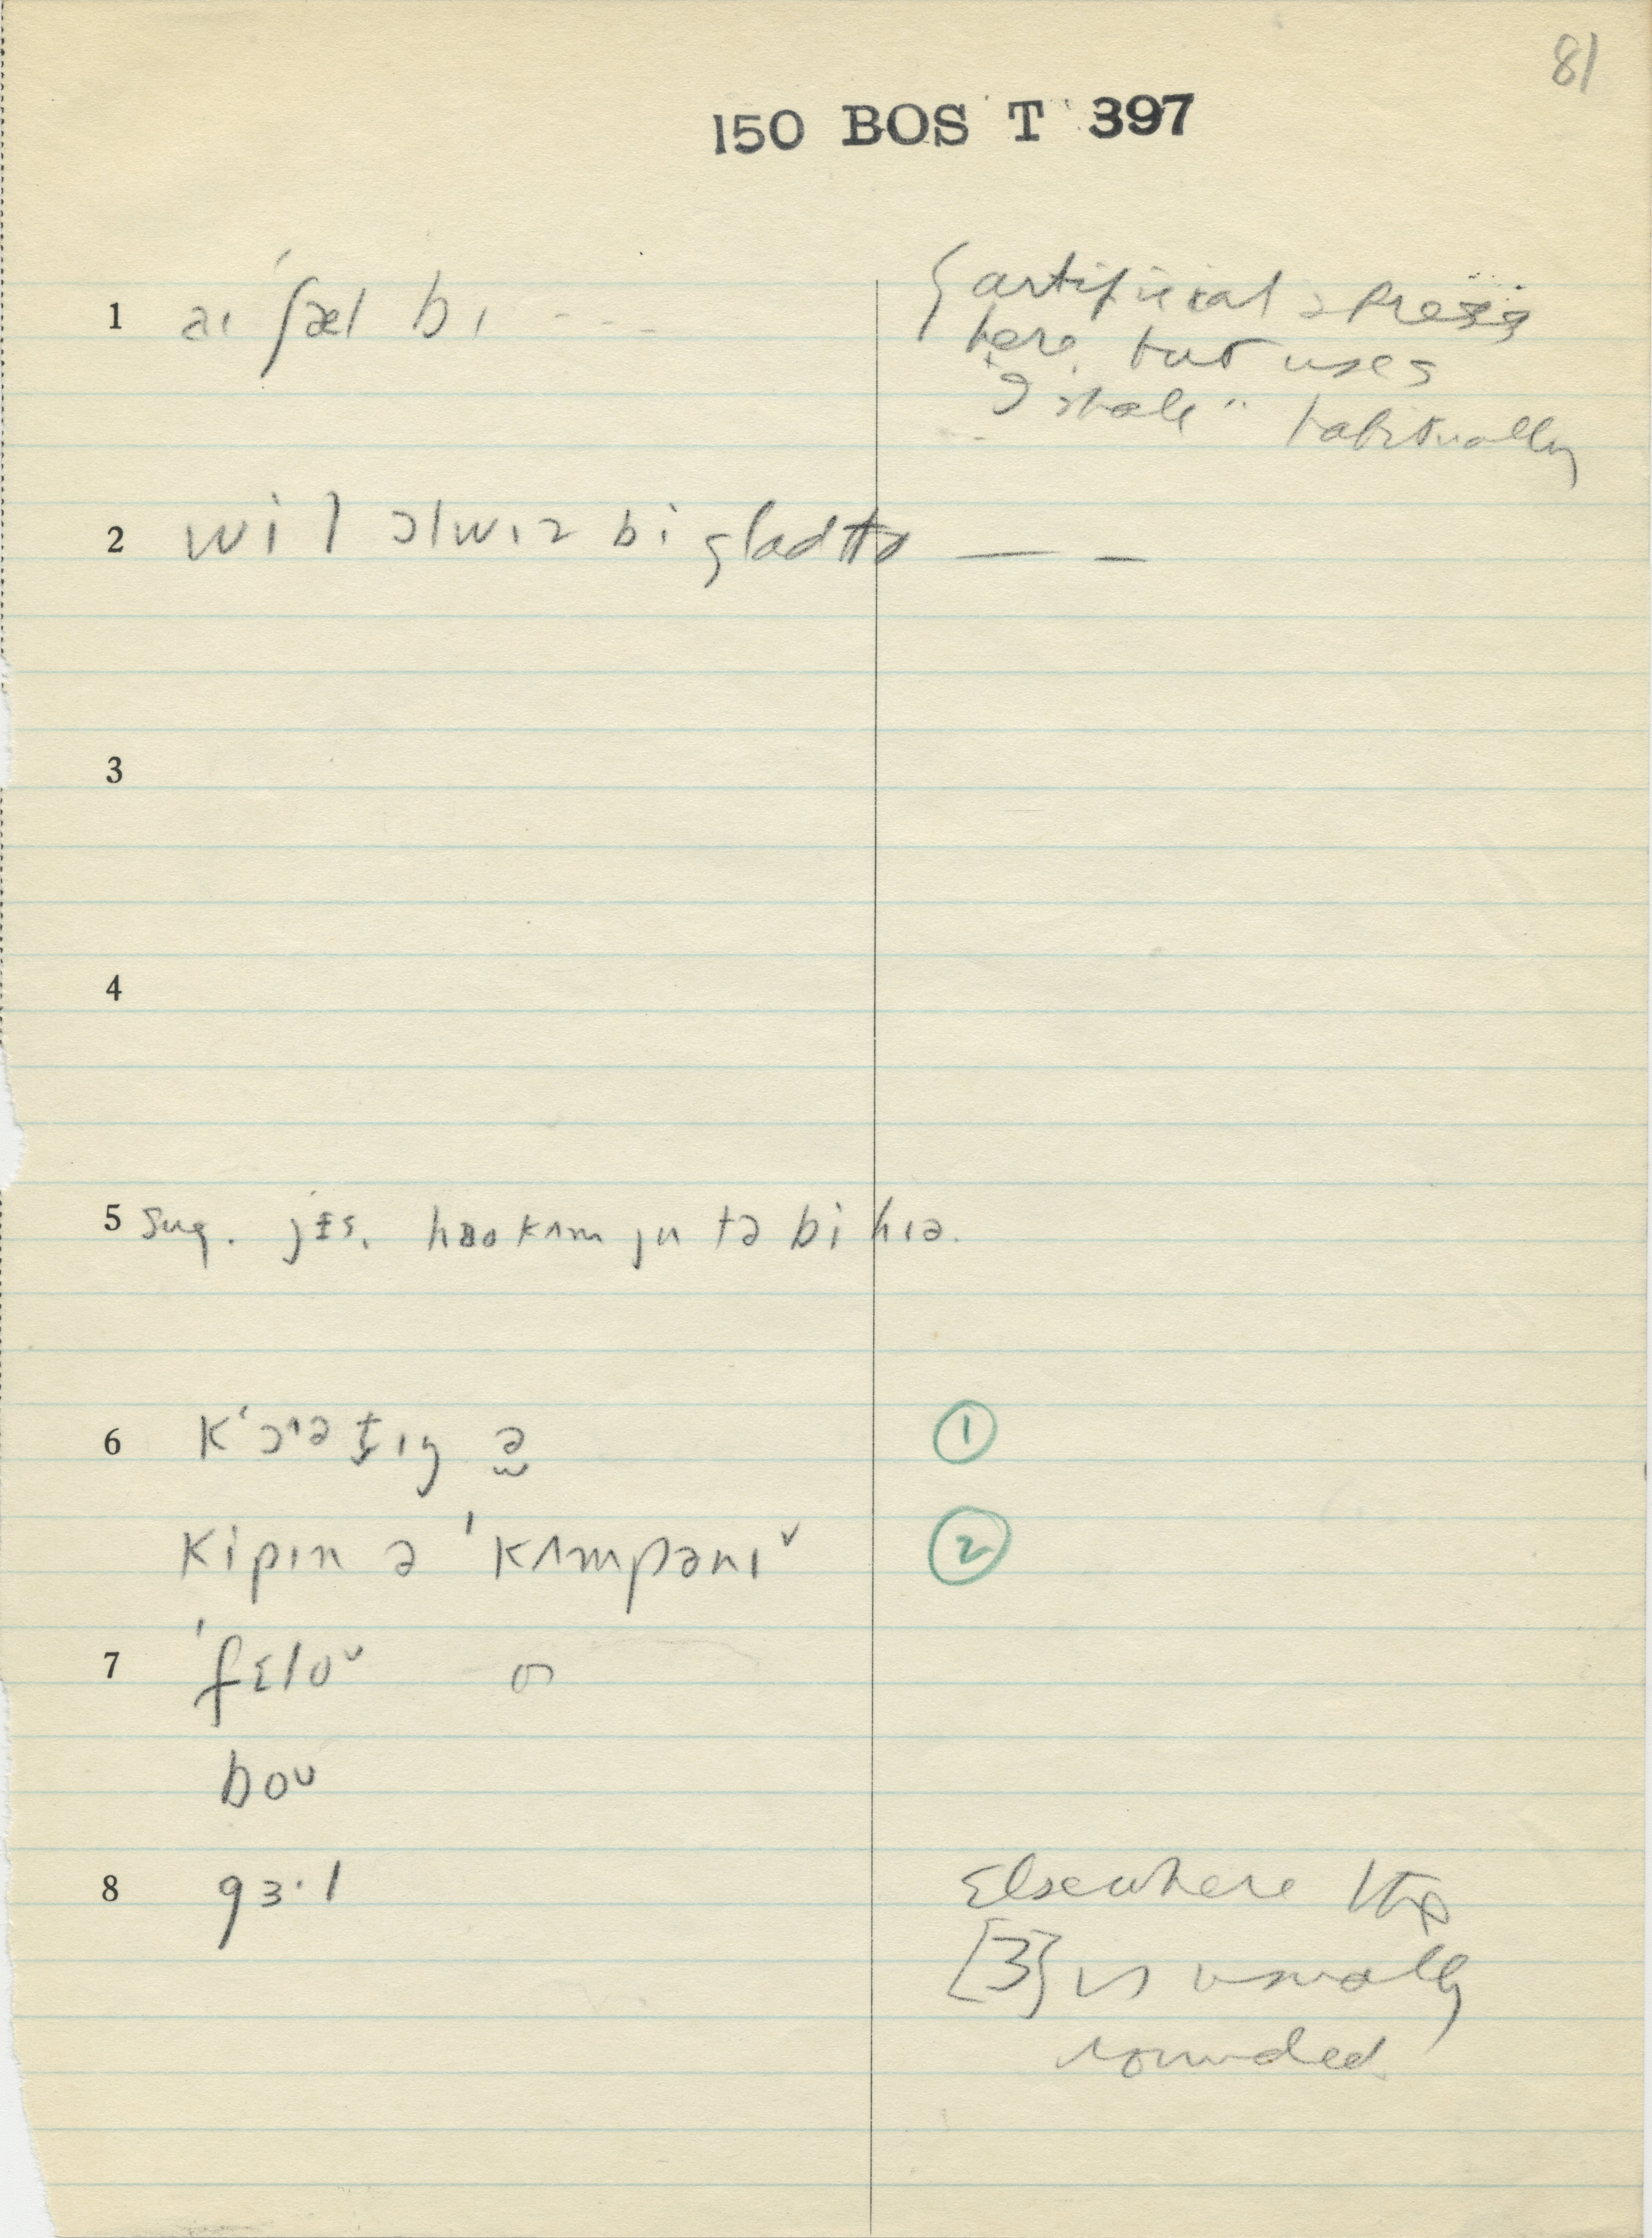 81
150 BOS T 397
1 aɪ ʃæl bɪ - - - { artificial stress
here, but uses
"I shall" habitually
2 wi l ɔlwɪz bi glad tə — —
3
4
5 sug. jɛs. haʊ kʌm ju tə bi hɪə.
6 kʻɔəṱɪŋ ə 1
kipɪn ə ˈkʌmpənɪˇ 2
7 ˈfɛloᵘ
boᵘ
8 gɜ·l Elsewhere the
[ɜ] is usually
rounded